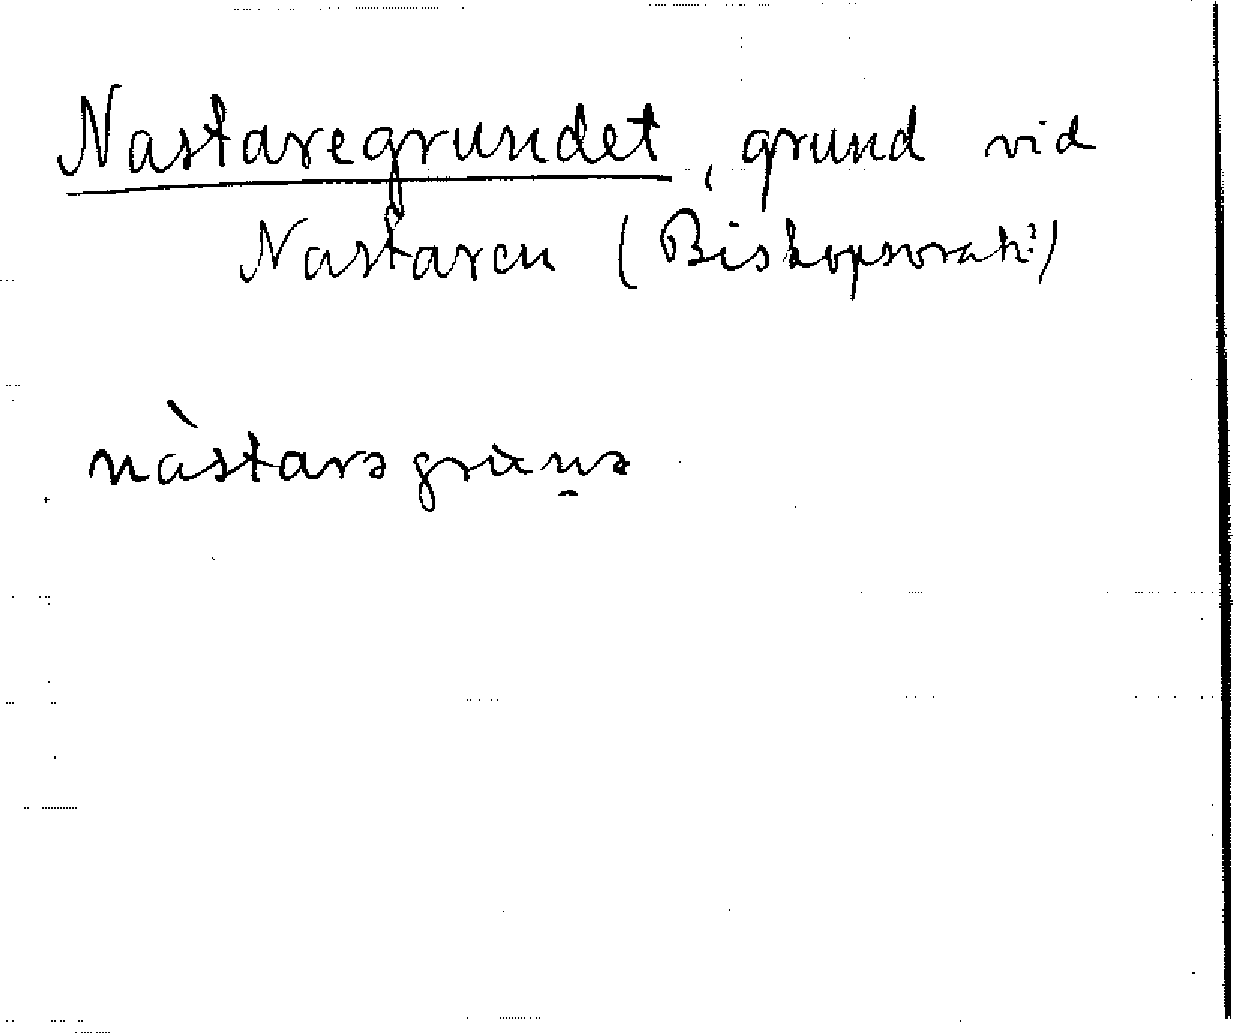 Nastaregrundet, grund vid
Nastaren (Biskopsvrak?)
nàstarəgrùn̠ə